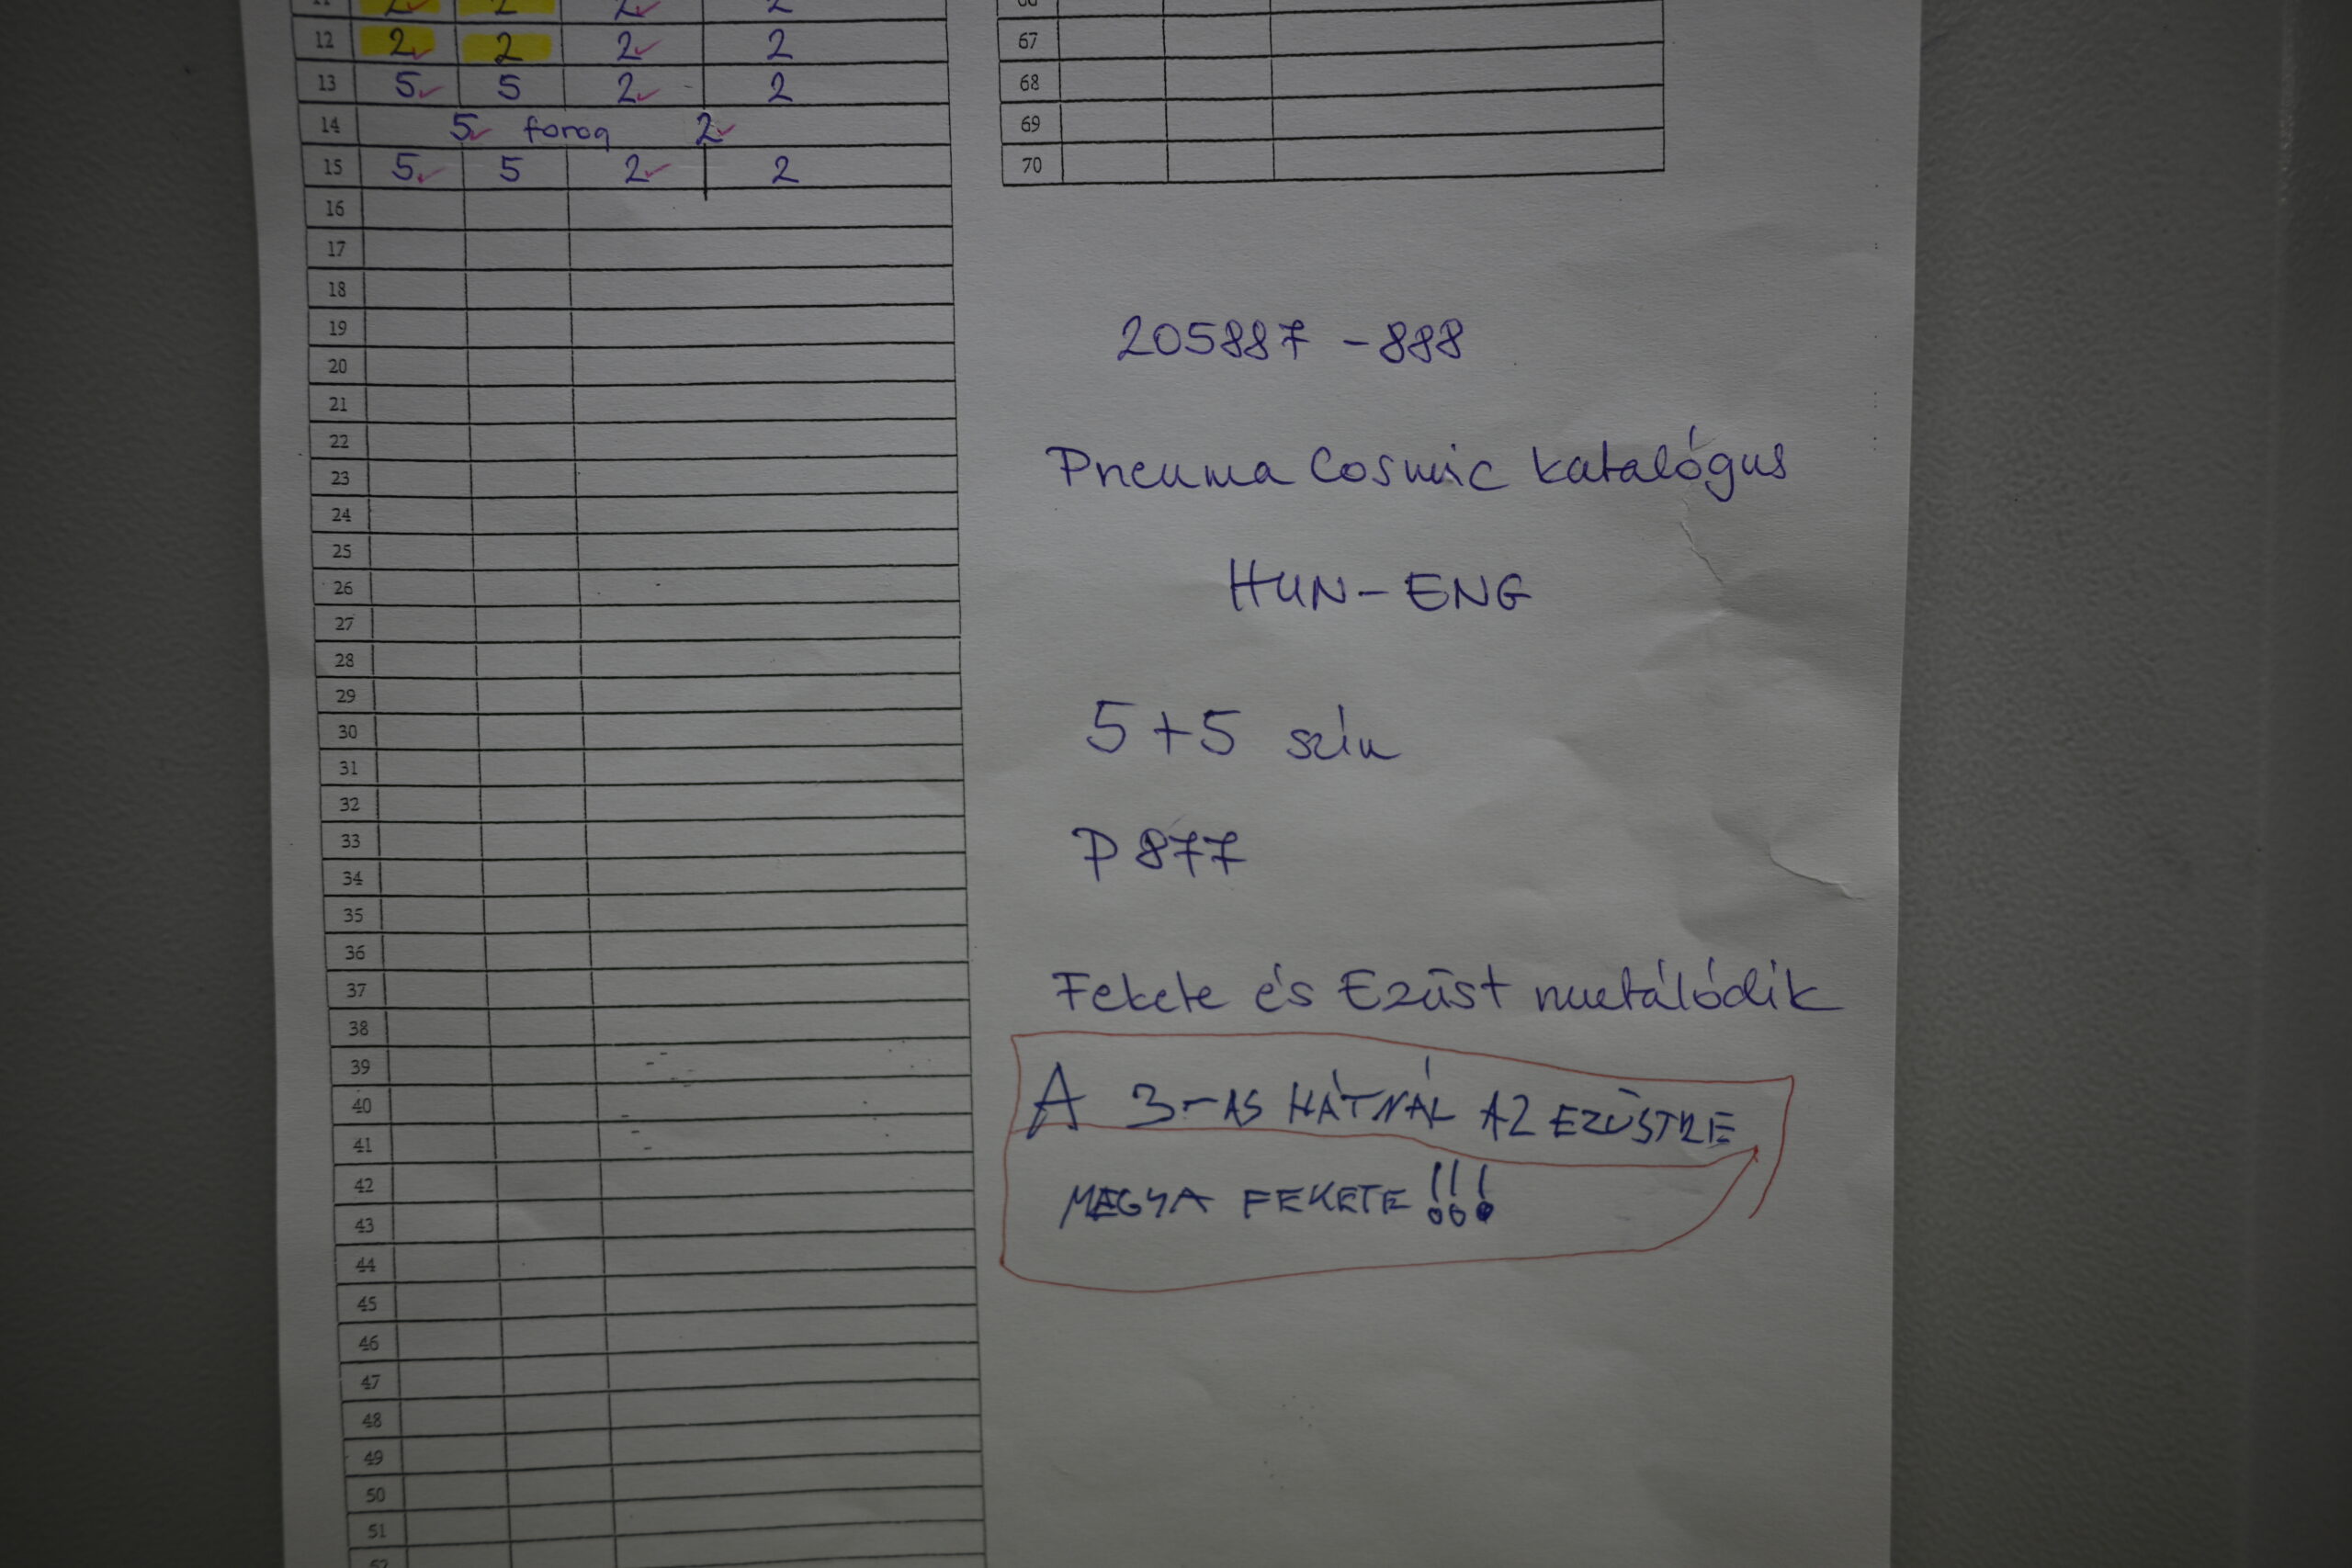 12 2 2 2 2
13 5 5 2 2
14 5 forog 2
15 5 5 2 2
16
17
18
19
20
21
22
23
24
25
26
27
28
29
30
31
32
33
34
35
36
37
38
39
40
41
42
43
44
45
46
47
48
49
50
51
67
68
69
70
205887 - 888
Pneuma Cosmic katalógus
HUN - ENG
5 + 5 szín
P 877
Fekete és Ezüst mutálódik
A 3-AS HÁTNÁL AZ EZÜSTRE
MEGYA FEKETE!!!